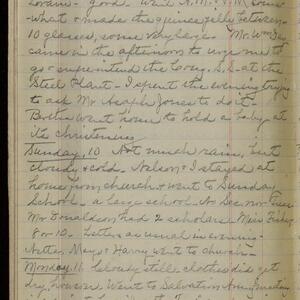 good. Went
what & made the quince jelly between
10 glasses, some very large. Mr. Wm
came in the afternoon to urge me to
go & superintend the Cong. S.S. at the
Steel Plant. I spent the evening trying
to ask Mr Asaph Jones to do it.
Bertha went home to hold a baby at
its Christening
Sunday, 10 Not much rain, but
cloudy & cold. Nelson & I stayed at
home from church & went to Sunday
School. a large school. No
Mr Donaldson had 2 scholars. Miss
8 or 10. Letters as usual in evening.
Nettie, Mayo & Harry went to church.
Monday, 11 Cloudy still, clothes did get
dry, however. Went to Salvation Army